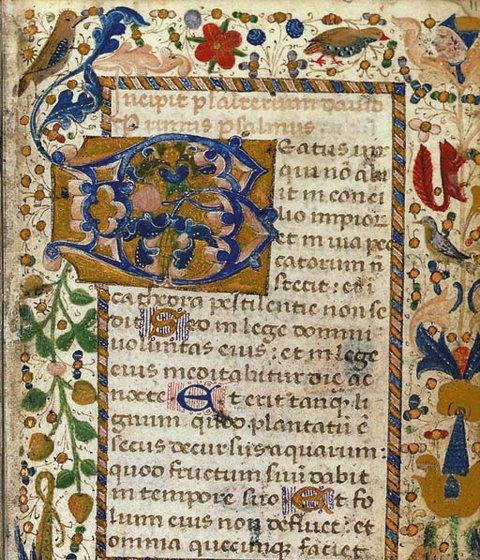 Incipit psalterium david
Primus psalmus
Eatus uir
qui nō abi
it in consi
lio impior
et in uia pec
catorum n̄
stetit : et i
cathedra pestilentie non se
dit Sed in lege domini
uoluntas eius : et in lege
eius meditabitur die ac
nocte Et erit tanq̄ li
gnum quod plantatū e
secus decursus aquarum :
quod fructum suū dabit
in tempore suo Et fo
lium eius non defluet : et
omnia quecunq̄ faciet